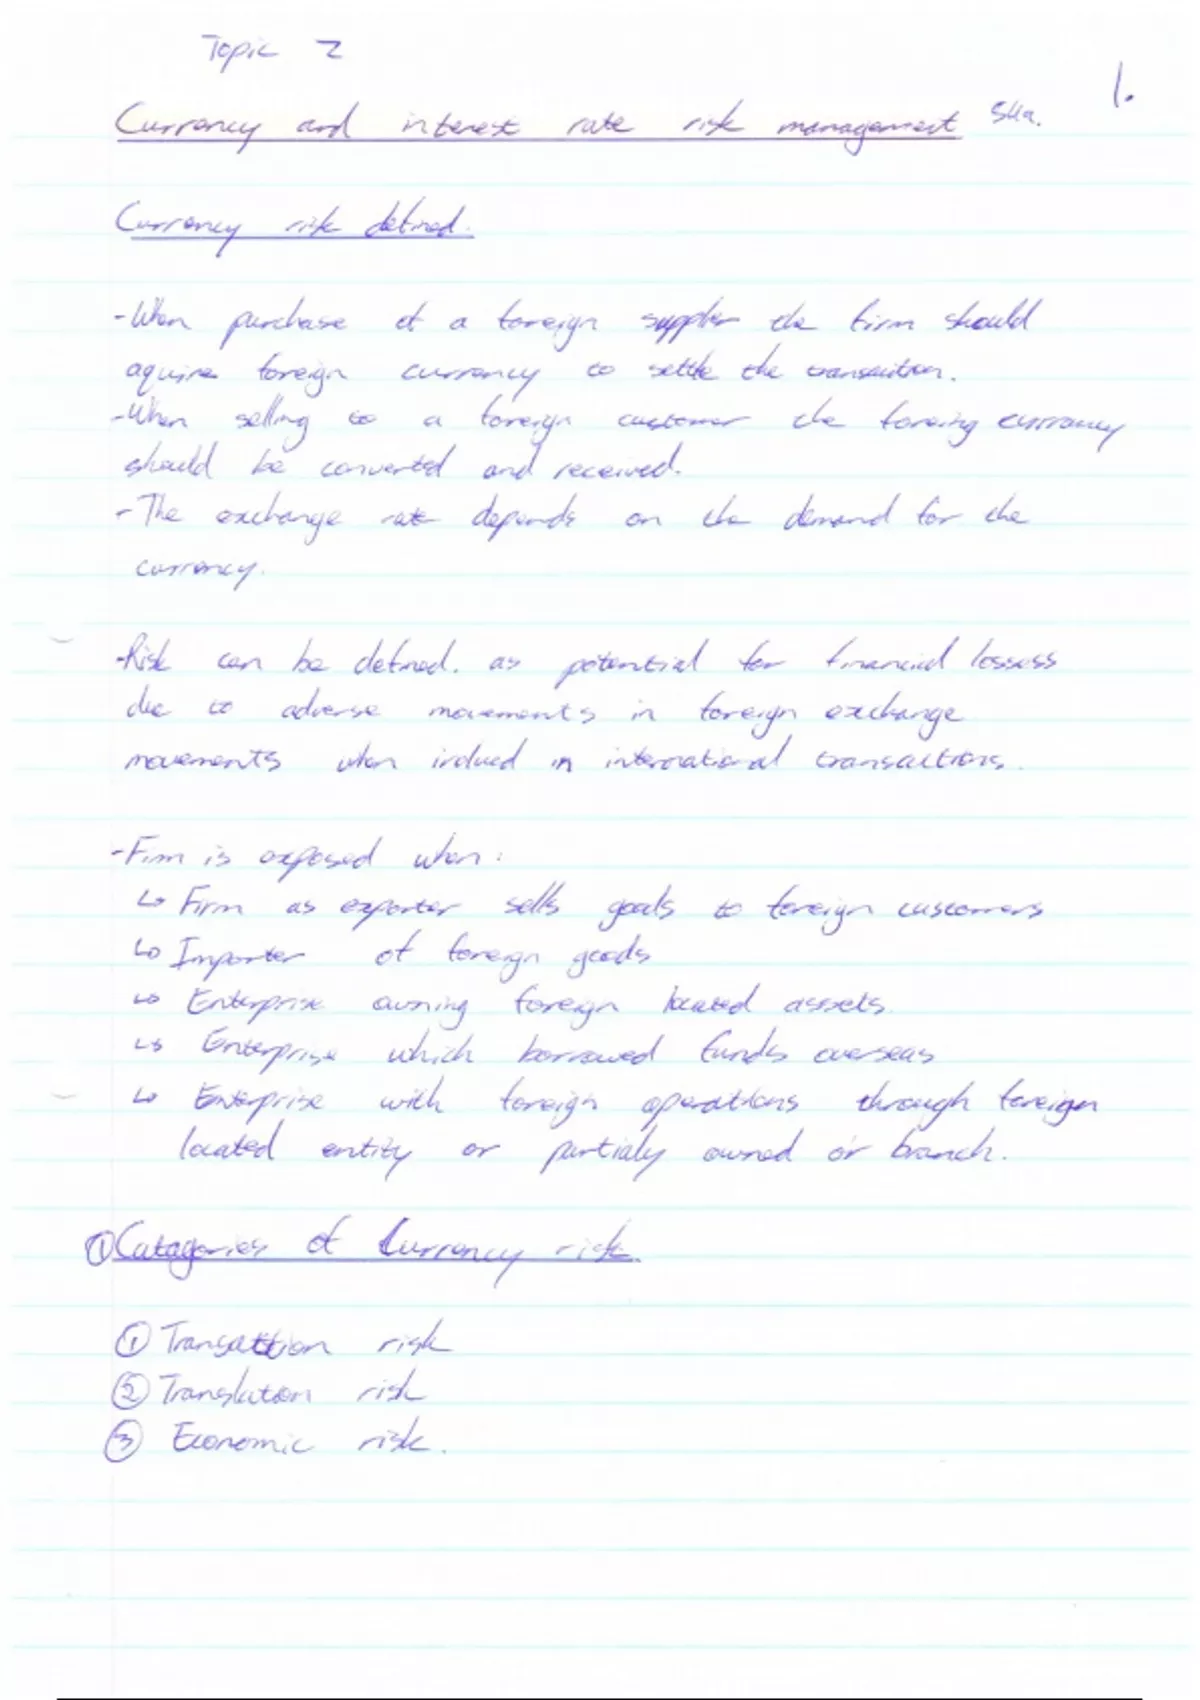 Topic 2
1.
Currency and interest rate risk management
Currency risk defined.
-When purchase of a foreign supplier the firm should
aquire foreign currency to settle the transaction.
-When selling to a foreign customer the foreing currency
should be converted and received.
-The exchange rate depends on the demand for the
currency.
-Risk can be defined. as potential for financial lossess
due to adverse movements in foreign exchange
movements when in international transactions.
-Firm is exposed when:
↳ Firm as exporter sells goods to foreign customers
↳ Importer of foreign goods
↳ Enterprise owning foreign located assets.
↳ Enterprise which borrowed funds overseas
↳ Enterprise with foreign operations through foreign
located entity or partialy owned or branch.
① Catagories of Currency risk.
① Transaction risk
② Translation risk
③ Economic risk.